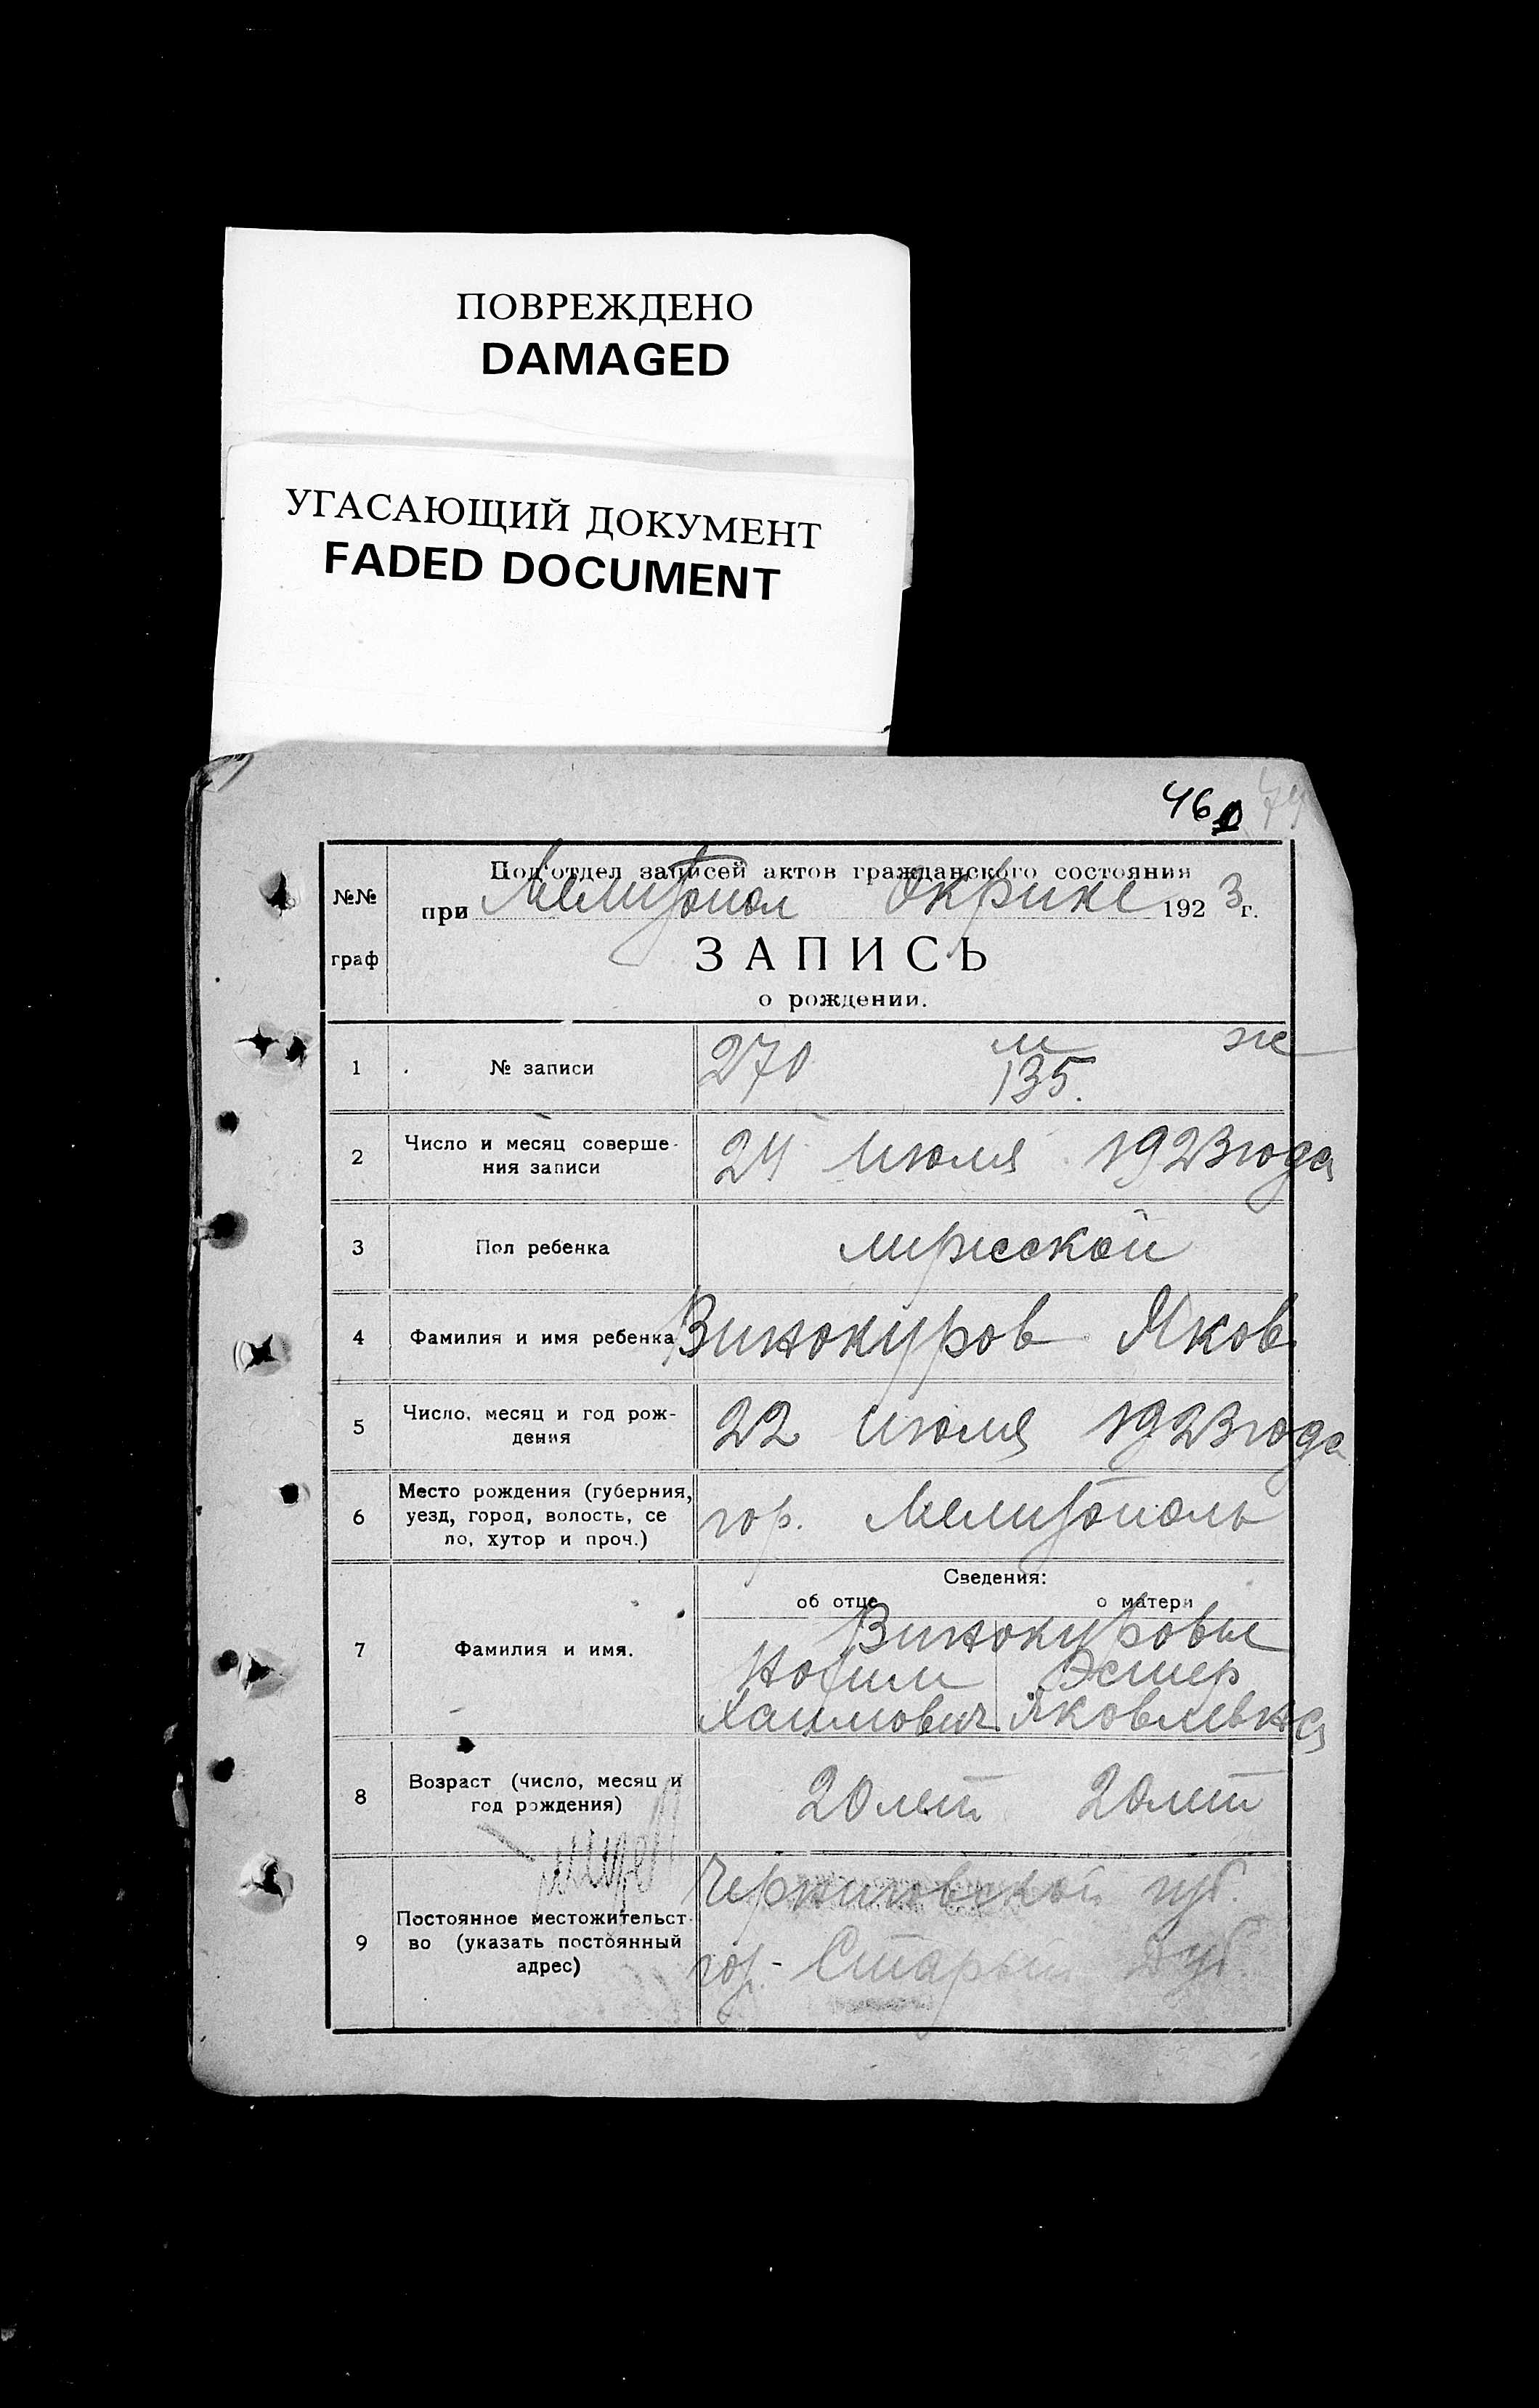 ПОВРЕЖДЕНО
DAMAGED
УГАСАЮЩИЙ ДОКУМЕНТ
FADED DOCUMENT
№№ граф
Под'отдел записей актов гражданского состояния
при Мелитопол Окрике 1923 г.
ЗАПИСЬ
о рождении.
1 № записи 270 м ж
135.
2 Число и месяц соверше-
ния записи
24 июля 1923 года
3 Пол ребенка мужской
4 Фамилия и имя ребенка Винокуров Яков
5 Число, месяц и год рож-
дения
22 июля 1923 года
6 Место рождения (губерния,
уезд, город, волость, се
ло, хутор и проч.)
гор. Мелитополь
Сведения:
об отце о матери
7 Фамилия и имя.
Винокуровы
Эстер
Хаимович Яковлевна
8 Возраст (число, месяц и
год рождения)
20 лет 20 лет
9 Постоянное местожительст-
во (указать постоянный
адрес)
Черниговской губ.
гор. Старый Дуб.